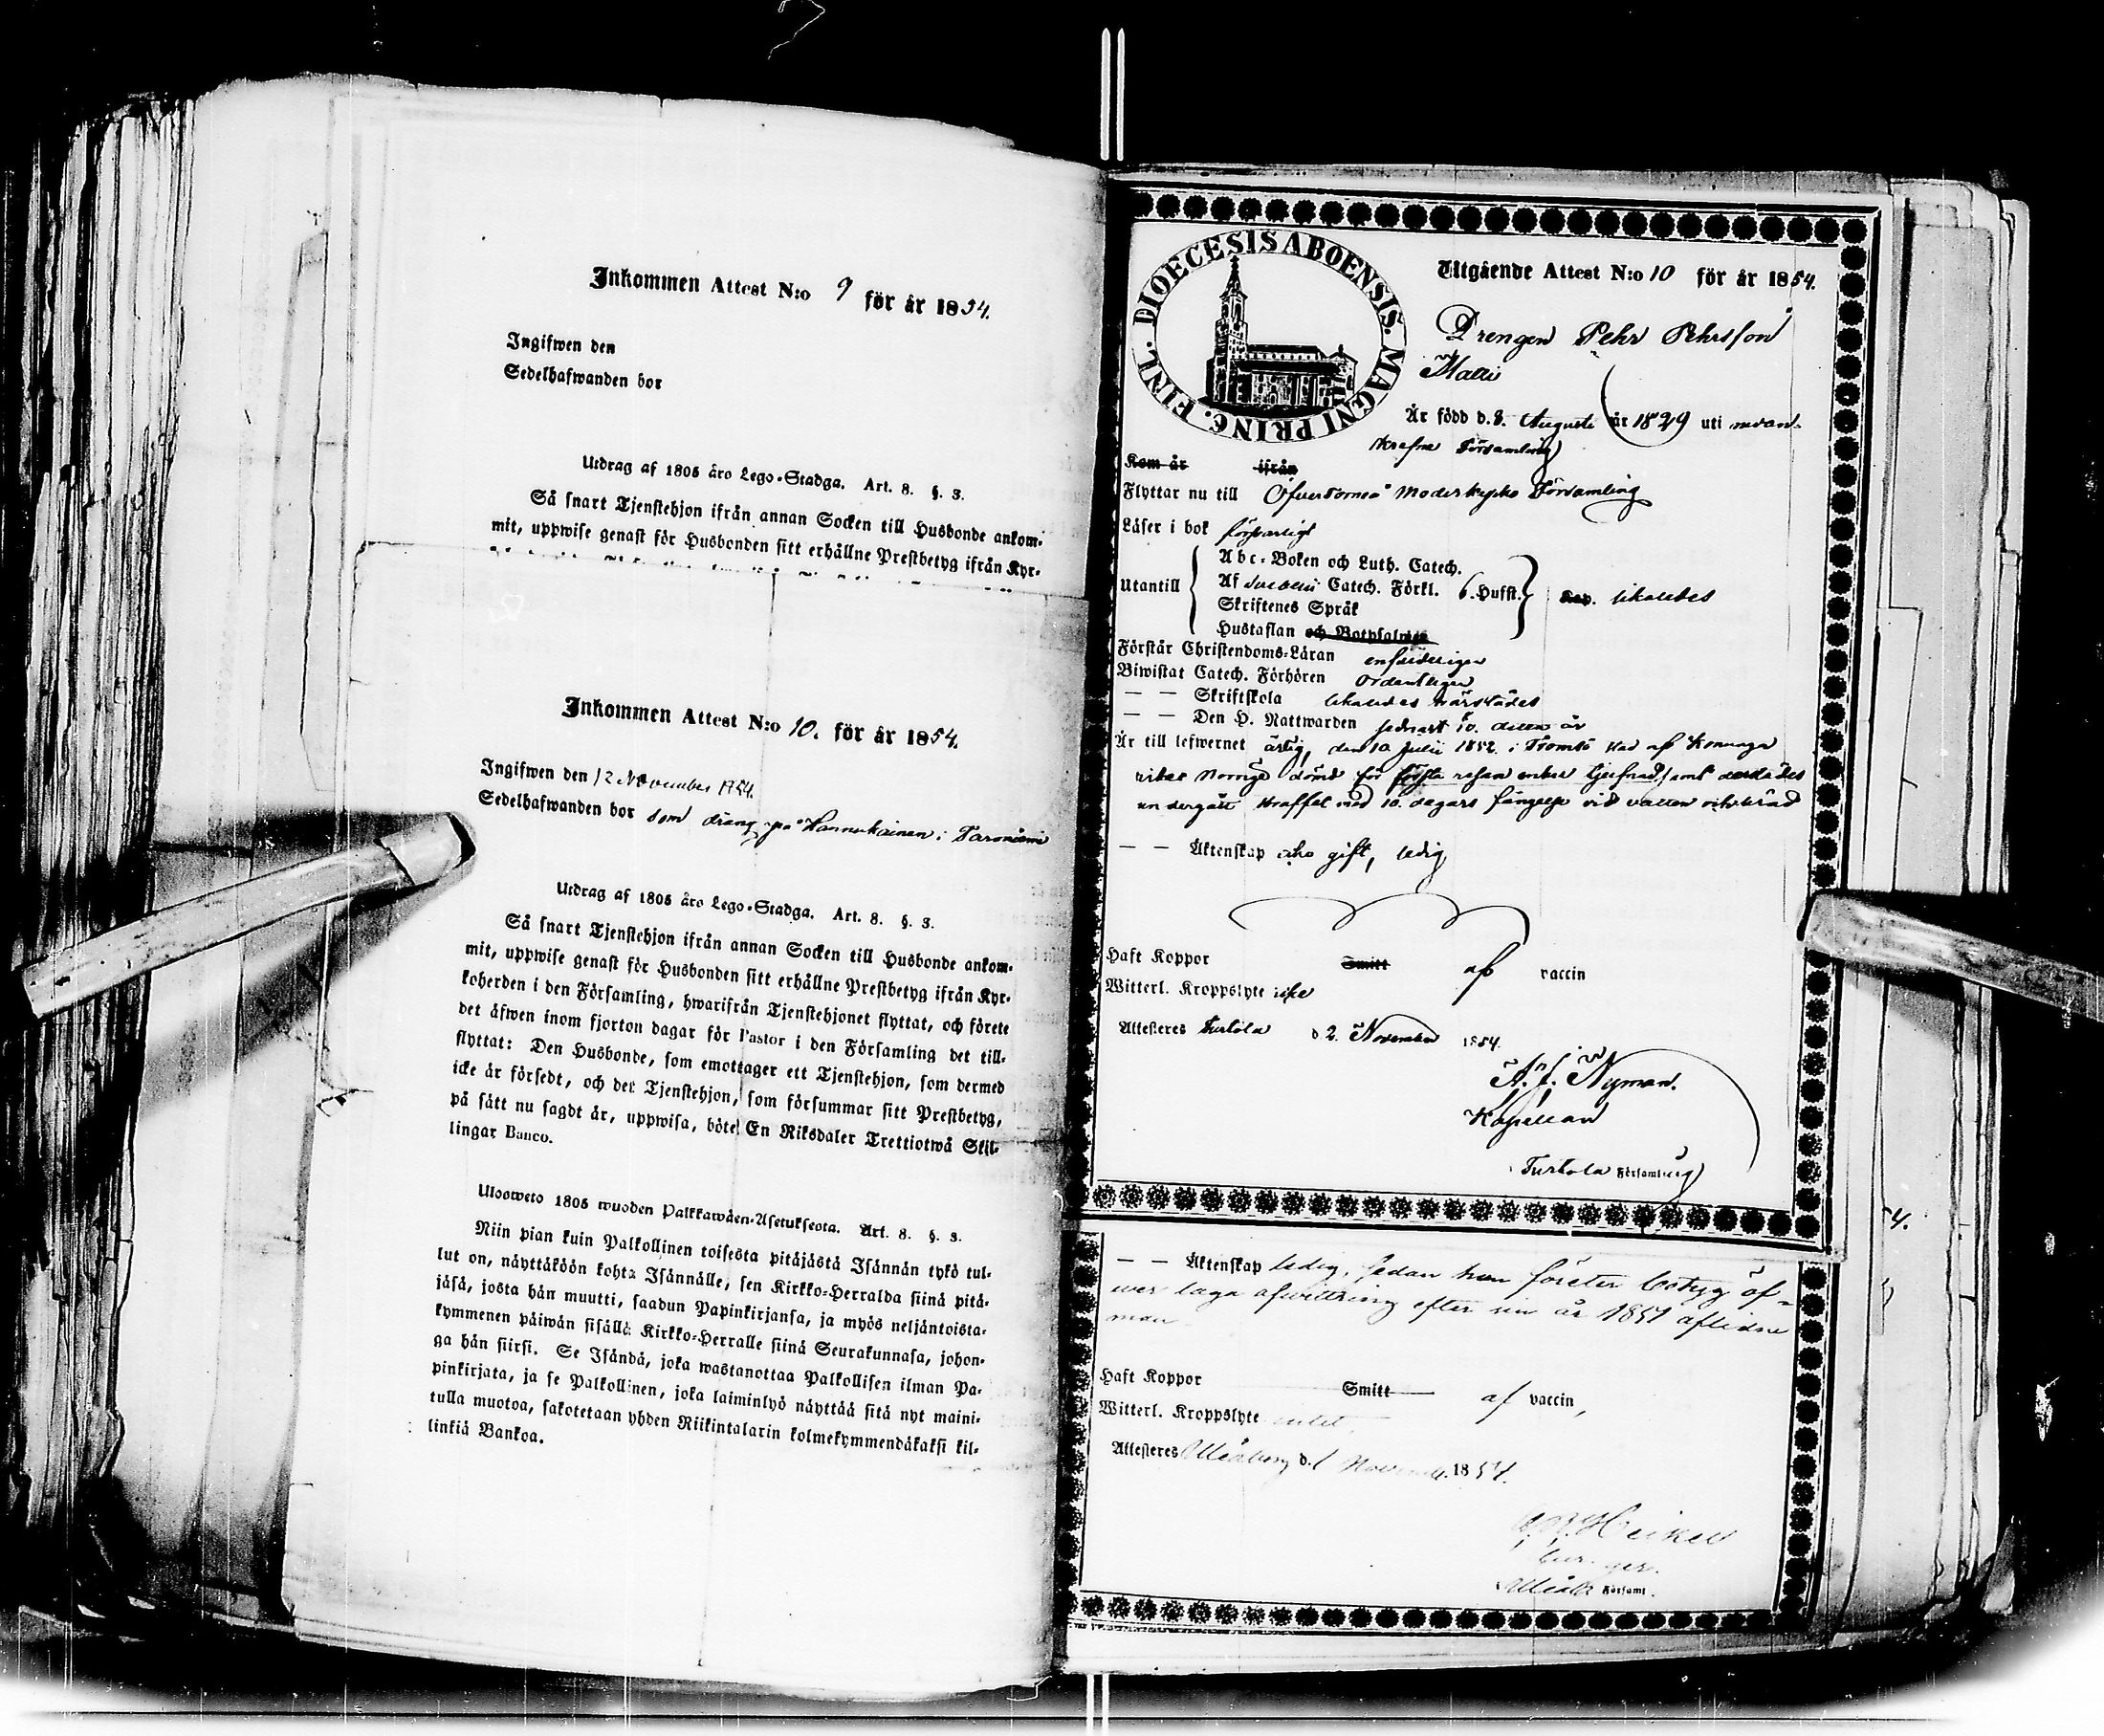 Inkommen Attest N:o 9 för år 1854.
Ingifwen den
Sedelhafwanden bor
Utdrag af 1805 års Lego-Stadga. Art. 8. §. 3.
Så snart Tjenstehjon ifrån annan Socken till Husbonde ankom-
mit, uppwise genast för Husbonden sitt erhållne Prestbetyg ifrån Kyr-
Inkommen Attest N:o 10. för år 1854.
Ingifwen den 12 November 1854.
Sedelhafwanden bor som dräng på Hannukainen i
Utdrag af 1805 års Lego-Stadga. Art. 8. §. 3.
Så snart Tjenstehjon ifrån annan Socken till Husbonde ankom-
mit, uppwise genast för Husbonden sitt erhållne Prestbetyg ifrån Kyr-
koherden i den Församling, hwarifrån Tjenstehjonet flyttat, och förete
det äfwen inom fjorton dagar för Pastor i den Församling det till-
flyttat: Den Husbonde, som emottager ett Tjenstehjon, som dermed
icke är försedt, och det Tjenstehjon, som försummar sitt Prestbetyg,
på sätt nu sagdt är, uppwisa, böte En Riksdaler Trettiotwå Skil-
lingar Banco.
Ulosweto 1805 wuoden Palkkawäen-Asetuksesta. Art. 8. §. 3.
Niin pian kuin Palkollinen toisesta pitäjästä Isännän tykö tul-
lut on, näyttäköön kohta Isännälle, sen Kirkko-Herralda siinä pitä-
jäsä, josta hän muutti, saadun Papinkirjansa, ja myös neljäntoista-
kymmenen päiwän sisällä Kirkko-Herralle siinä Seurakunnasa, johon-
ga hän siirsi. Se Isändä, joka wastanottaa Palkollisen ilman Pa-
pinkirjata, ja se Palkollinen, joka laiminlyö näyttää sitä nyt maini-
tulla muotoa, sakotetaan yhden Riikintalarin kolmekymmendäkaksi kil-
linkiä Bankoa.
DIOECESIS ABOENSIS. MAGNI PRINC. FINL.
Utgående Attest N:o 10 för år 1854.
Drengen Pehr Pehrsson
Är född d. 8. Augusti år 1829 uti ovan-
skrefne Församling
Kom år ifrån
Flyttar nu till Öfvertorneå Moderkyrko Församling
Läser i bok försvarligt
Utantill
Abc-Boken och Luth. Catech.
Af Svebelii Catech. Förkl. 6. Hufst.
Skriftenes Språk
Hustaflan och Botpsalmen
Kap. likaledes
Förstår Christendoms-Läran enfaldeligen
Biwistat Catech. Förhören ordentligen
— — Skriftskola likaledes
— — Den H. Nattwarden sednast 10. detta år
Är till lefwernet ärlig, den 10 Julii 1852 i Tromsö stad af Konunga
riket Norrige dömd för första resan enkel tjufnad, samt derstädes
undergått straffet med 10. dagars fängelse vid vatten och bröd
— — Äktenskap icke gift, ledig
Haft Koppor Smitt af vaccin
Witterl. Kroppslyte icke
Attesteres Turtola d 2. November 1854.
Nyman.
Kapellan
Turtola Församling
— — Äktenskap ledig, sedan hon företer betyg öf-
wer laga afwittring efter sin år 1851 aflidne
man
Haft Koppor Smitt af vaccin,
Witterl. Kroppslyte intet
Attesteres Uleåborg d. 1 November 1854.
Heikel
Uleåb Församl.